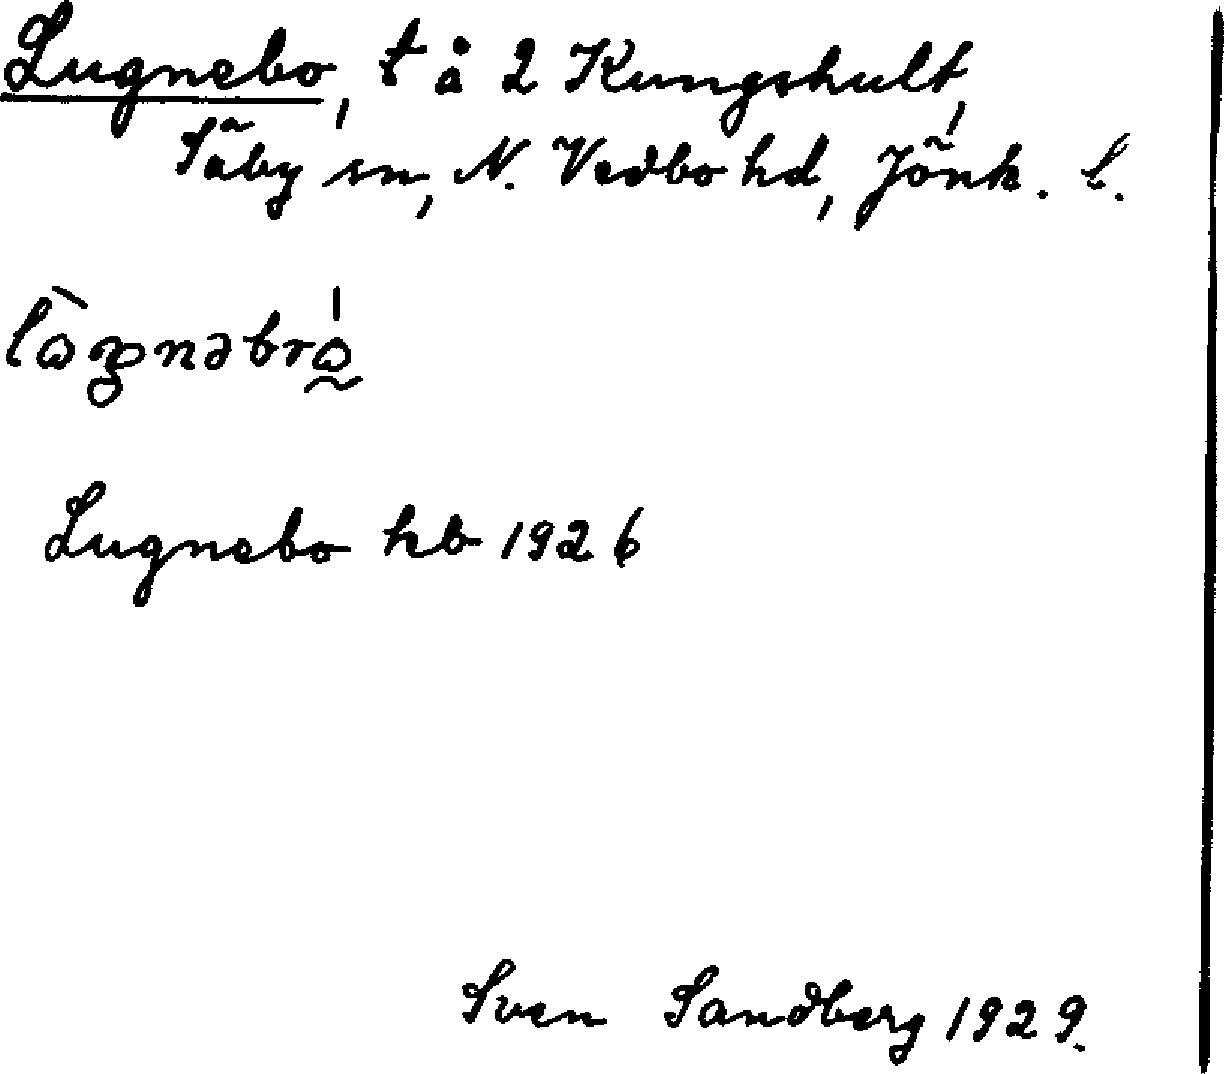 Lugnebo, t å 2 Kungshult,
Säby sn, N. Vedbo hd, Jönk. l.
Lugnebo hb 1926
Sven Sandberg 1929.